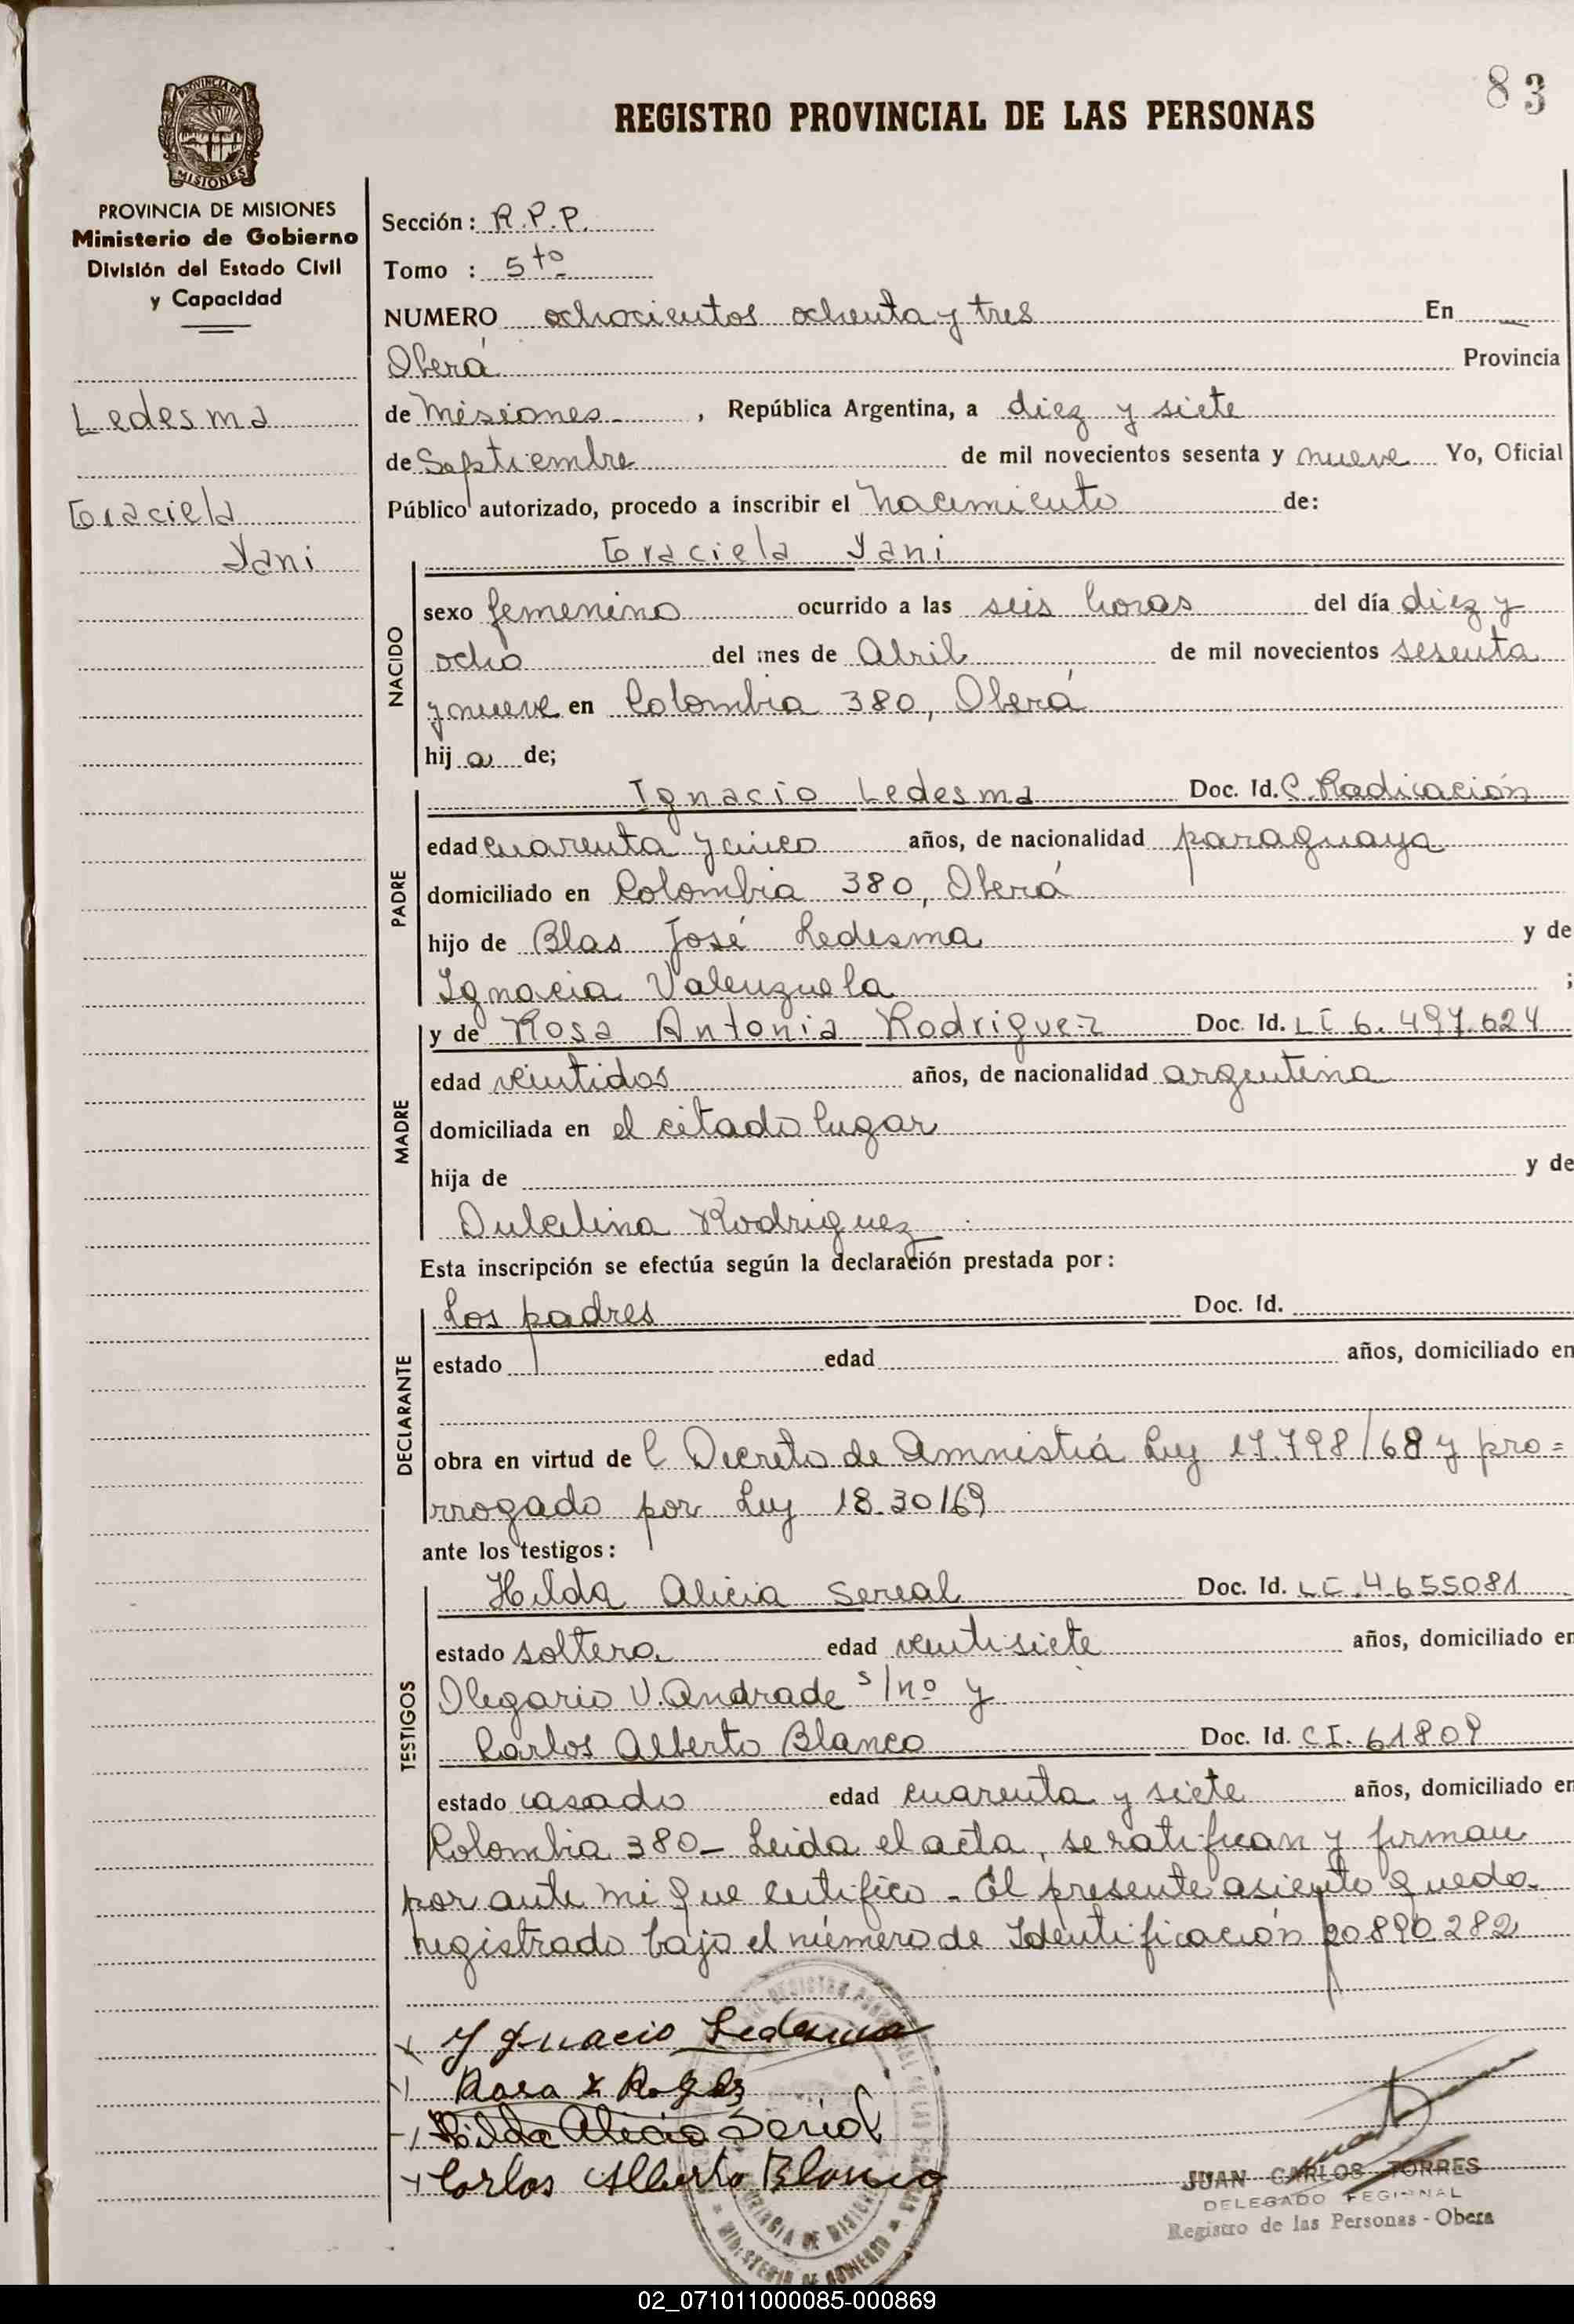 83
REGISTRO PROVINCIAL DE LAS PERSONAS
PROVINCIA DE MISIONES
PROVINCIA DE MISIONES
Ministerio de Gobierno
División del Estado Civil
y Capacidad
Ledesma
Graciela
Yani
Sección: R.P.P.
Tomo : 5to
NUMERO ochocientos ochenta y tres En
Oberá Provincia
de Misiones , República Argentina, a diez y siete
de Septiembre de mil novecientos sesenta y nueve Yo, Oficial
Público autorizado, procedo a inscribir el nacimiento de:
Graciela Yani
NACIDO
sexo femenino ocurrido a las seis horas del día diez y
ocho del mes de Abril de mil novecientos sesenta
y nueve en Colombia 380, Oberá
hij a de;
PADRE
Ignacio Ledesma Doc. Id. C. Radicación
edad cuarenta y cinco años, de nacionalidad paraguaya
domiciliado en Colombia 380, Oberá
hijo de Blas José Ledesma y de
Ignacia Valenzuela ;
MADRE
y de Rosa Antonia Rodriguez Doc. Id. LC 6.497.624
edad veintidos años, de nacionalidad argentina
domiciliada en el citado lugar
hija de y de
Dulcelina Rodriguez
Esta inscripción se efectúa según la declaración prestada por:
DECLARANTE
Los padres Doc. Id.
estado edad años, domiciliado en
obra en virtud de l Decreto de Amnistiá Ley 17.798/68 y pro=
rrogado por Ley 18.30/69
ante los testigos:
TESTIGOS
Hilda Alicia Sereal Doc. Id. LC.4.655081
estado soltera edad ventisiete años, domiciliado en
Olegario V. Andrade s/nº y
Carlos Alberto Blanco Doc. Id. CI. 61809
estado casado edad cuarenta y siete años, domiciliado en
Colombia 380_ Leida el acta, se ratifican y firman
por ante mi que certifico - El presente asiento queda
registrado bajo el número de Identificación 20890282
Ignacio Ledesma
Rosa
Hilda Alicia
Carlos Alberto Blanco
JUAN CARLOS TORRES
DELEGADO REGIONAL
Registro de las Personas - Obera
02_071011000085-000869